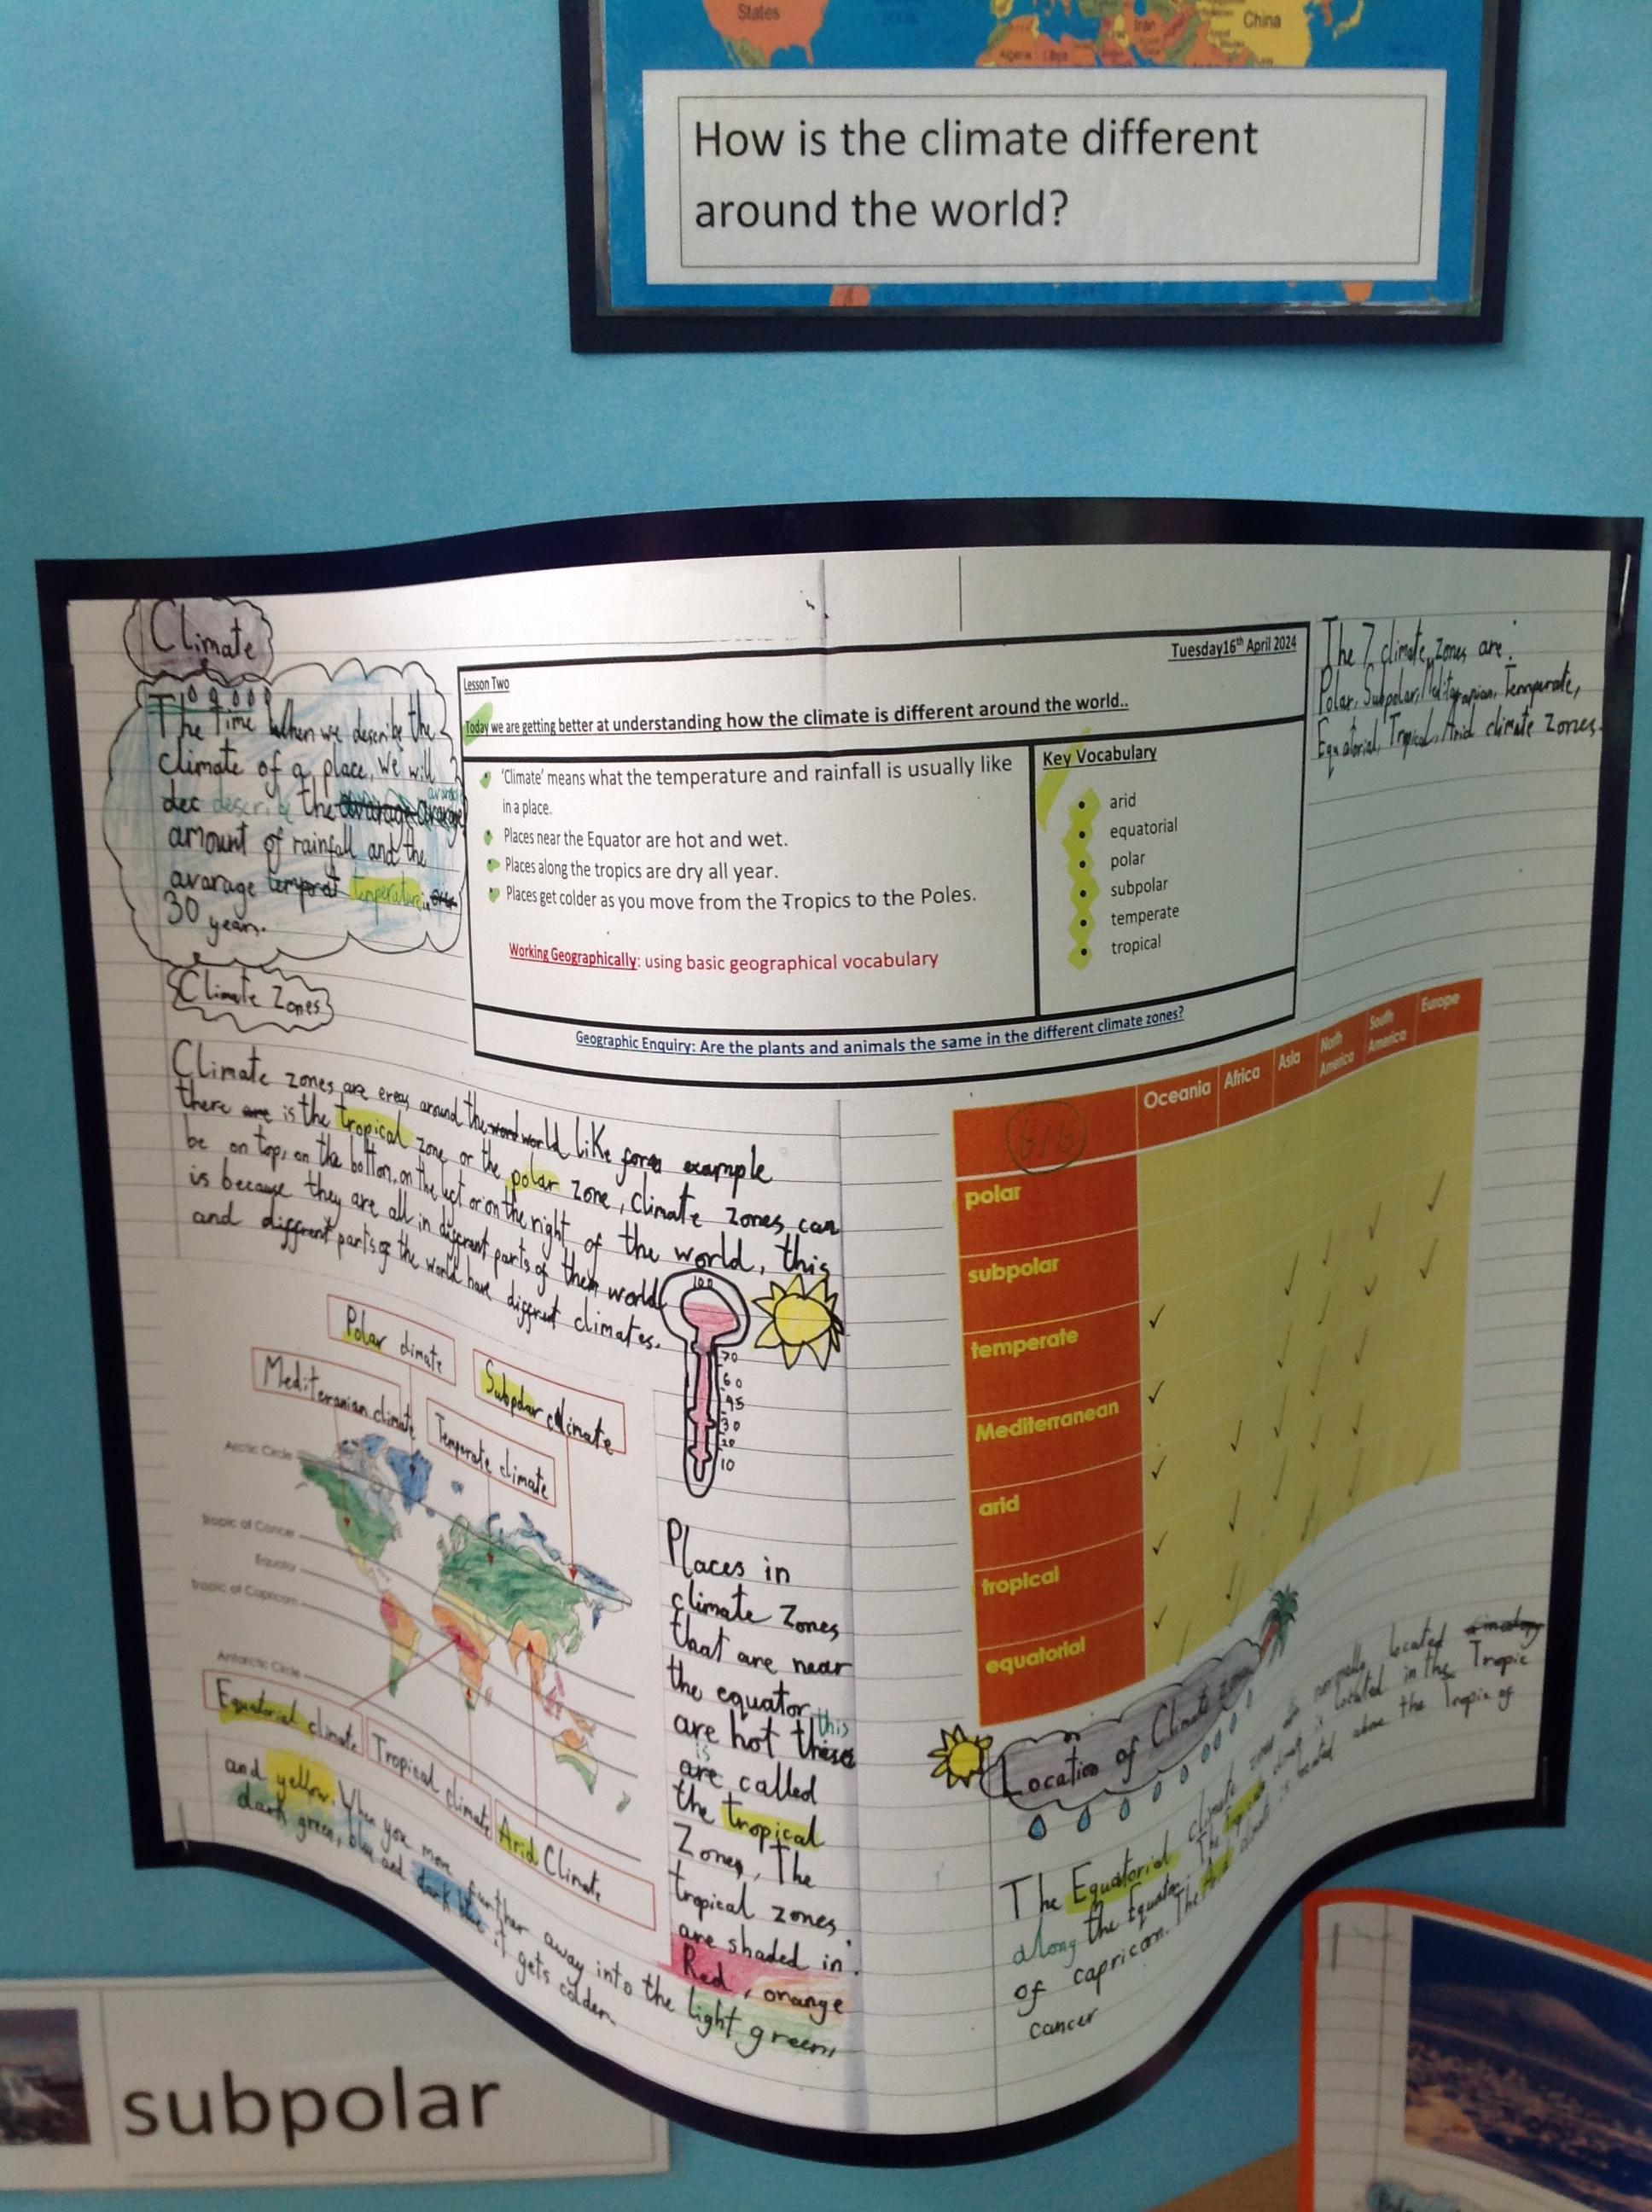 States
China
Iran
Algeria
Libya
How is the climate different
around the world?
Climate
The Time When we describe the
climate of a place, we will
dec describe the
amount of rainfall and the
avarage temprat temperature in
30 years.
Climate Zones
Climate zones are ereas around the word world like forex example
there are is the tropical zone or the polar zone, climate zones can
be on top, on the bottom, on the lect or on the right of the world, this
is because they are all in different parts of them world
and different parts of the world have different climates.
Lesson Two
Tuesday16th April 2024
Today we are getting better at understanding how the climate is different around the world..
'Climate' means what the temperature and rainfall is usually like
in a place.
Places near the Equator are hot and wet.
Places along the tropics are dry all year.
Places get colder as you move from the Tropics to the Poles.
Working Geographically: using basic geographical vocabulary
Key Vocabulary
arid
equatorial
polar
subpolar
temperate
tropical
Geographic Enquiry: Are the plants and animals the same in the different climate zones?
The 7 climate zones are:
Polar, Subpolar, Temperate,
Equatorial, Tropical, Arid climate zones.
100
70
60
30
20
10
Polar climate
Subpolar climate
Mediteranian climate
Temperate climate
Arctic Circle
Tropic of Cancer
Equator
Tropic of Capricorn
Antarctic Circle
Equatorial climate
Tropical climate
Arid Climate
Places in
climate Zones
that are near
the equator this
are hot these
is
are called
the tropical
Zones, The
tropical zones
are shaded in:
Red, orange
and yellow. When you move further away into the light green,
dark green, blue and dark blue it gets colder.
6/6
Oceania
Africa
Asia
North America
South America
Europe
polar
subpolar
temperate
Mediterranean
arid
tropical
equatorial
Location of Climate zones
The Equatorial climate zone is normally located
along the Equator. The Tropical climate is located in the Tropic
of capricorn. The Arid climate is located above the Tropic of
cancer
subpolar